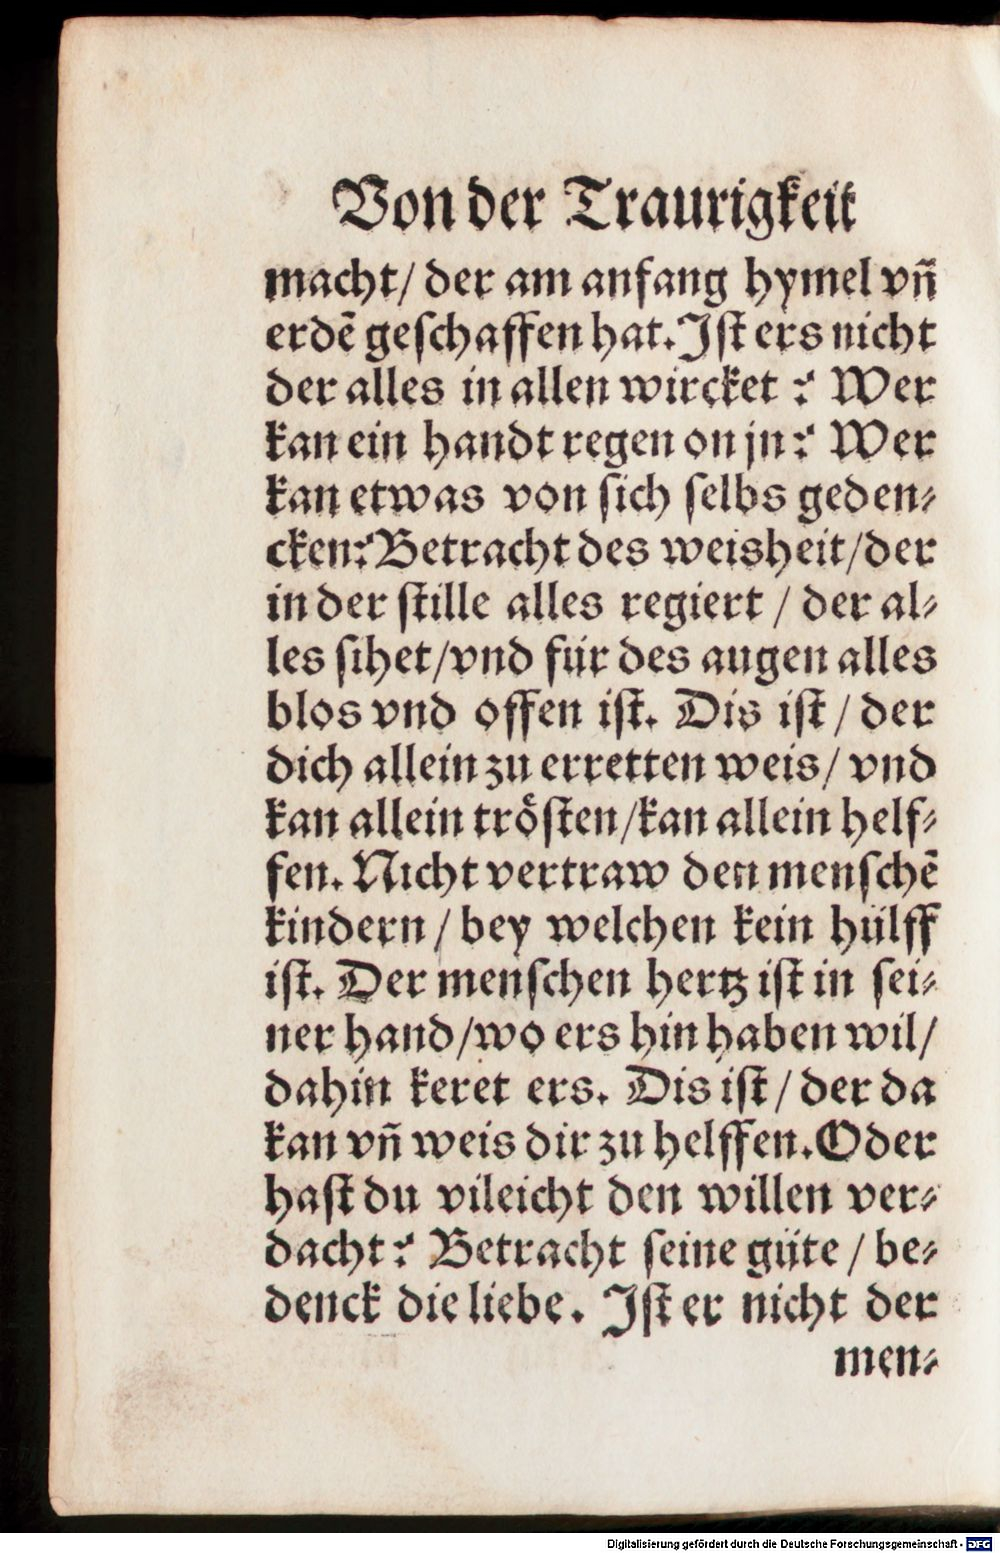 Von der Traurigkeit
macht/ der am anfang hymel vñ
erdẽ geſchaffen hat. Iſt ers nicht
der alles in allen wircket ? Wer
kan ein handt regen on jn? Wer
kan etwas von ſich ſelbs geden⸗
cken? Betracht des weisheit/der
in der ſtille alles regiert / der al⸗
les ſihet/vnd für des augen alles
blos vnd offen iſt. Dis iſt / der
dich allein zu erretten weis/ vnd
kan allein tröſten/kan allein helf⸗
fen. Nicht vertraw den menſchẽ
kindern / bey welchen kein hülff
iſt. Der menſchen hertz iſt in ſei⸗
ner hand/wo ers hin haben wil/
dahin keret ers. Dis iſt / der da
kan vñ weis dir zu helffen. Oder
haſt du vileicht den willen ver⸗
dacht? Betracht ſeine güte / be⸗
denck die liebe. Iſt er nicht der
men⸗
Digitalisierung gefördert durch die Deutsche Forschungsgemeinschaft - DFG